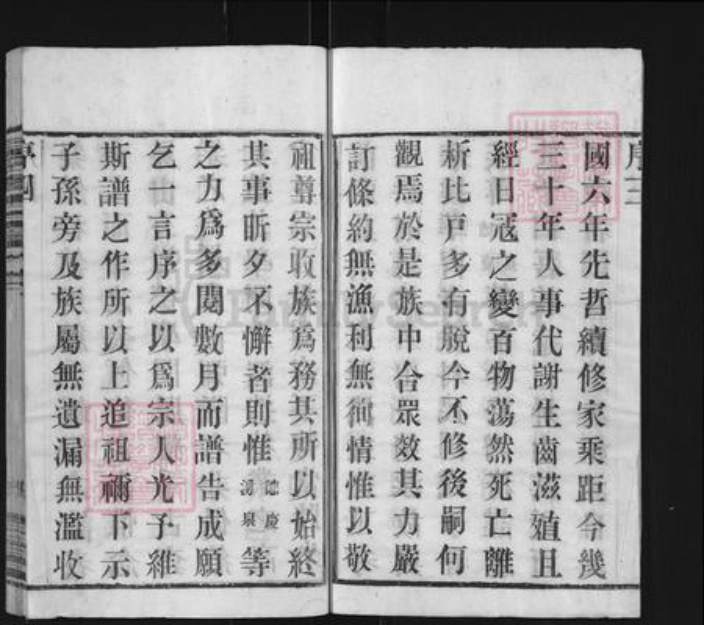 序三
國六年先哲續修家乘距今幾
三十年人事代謝生齒滋殖且
經日冦之變百物蕩然死亡離
析比戶多有脫今不修後嗣何
觀焉於是族中合眾效其力嚴
訂條約無漁利無徇情惟以敬
祖尊宗收族爲務其所以始終
其事昕夕不懈者則惟德慶湯泉等
之力爲多閱數月而譜告成願
乞一言序之以爲宗人光予維
斯譜之作所以上追祖禰下示
子孫旁及族屬無遺漏無濫收
序四
FamilySearch